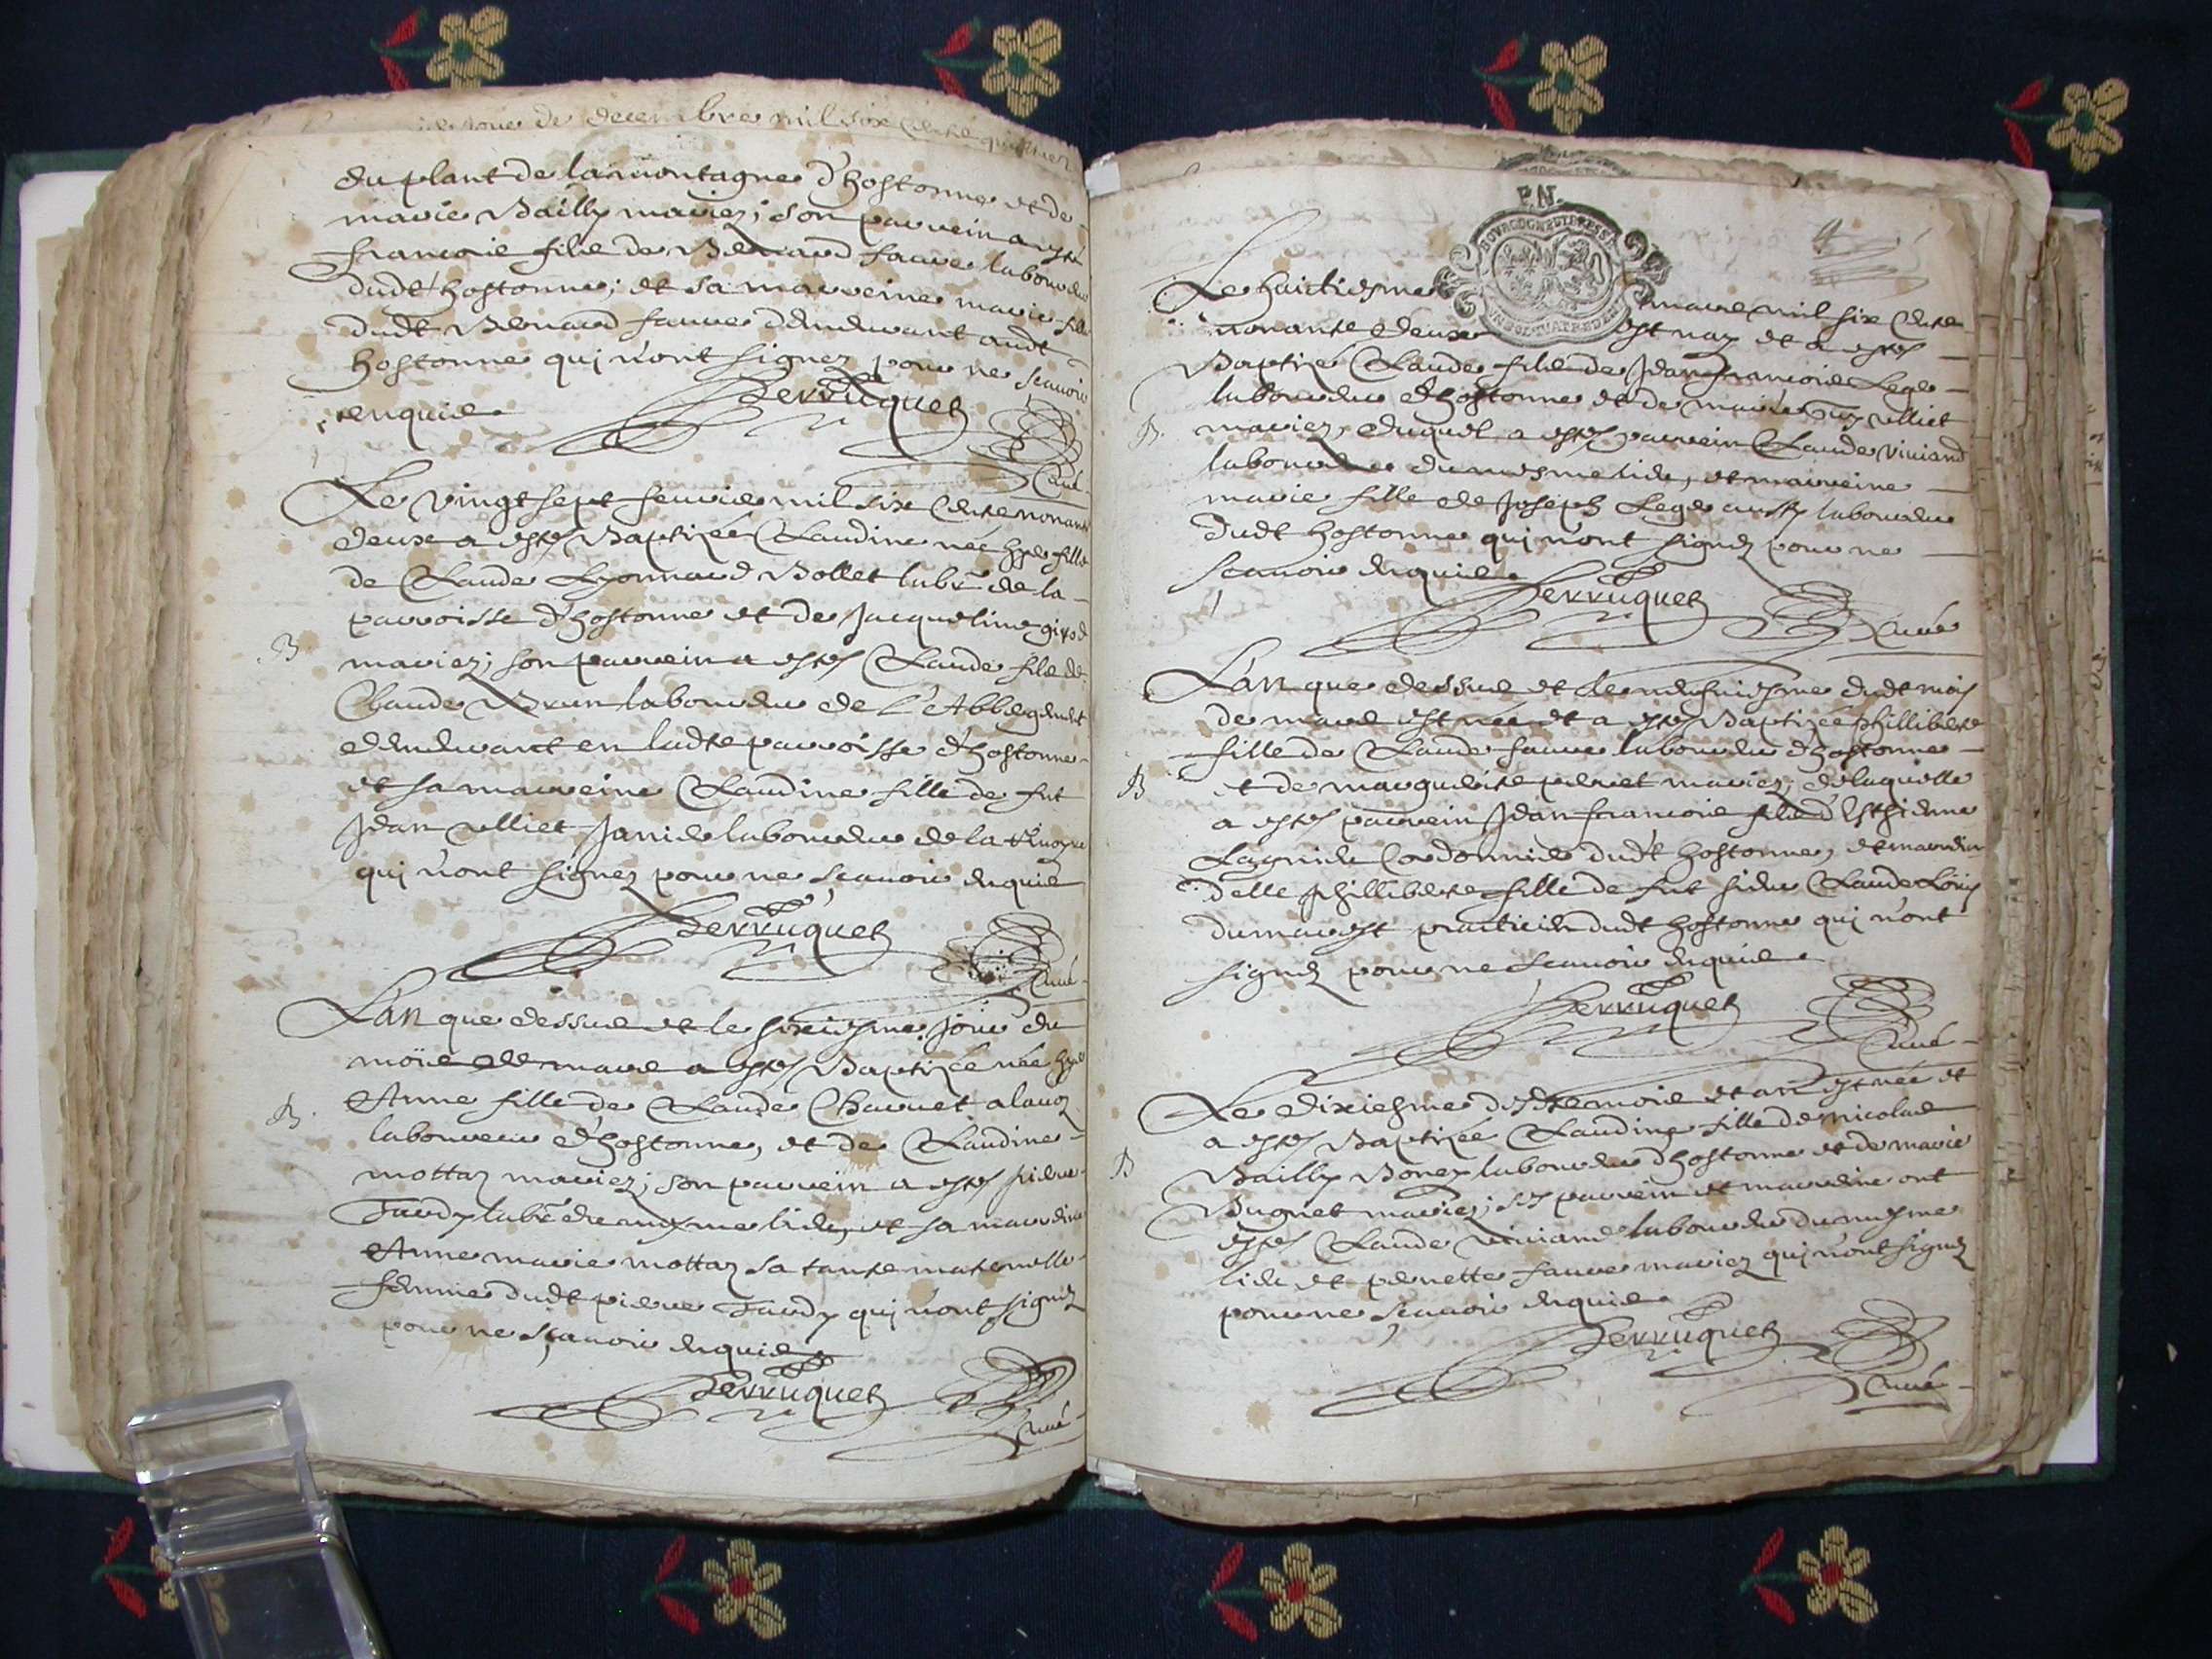 jour de decembre mil six cents quattre
du plant de la montagne d'hostonne et de
marie Bailly mariez; son parrein a esté
francois filz de Bernard fauvre laboureur
dudt hostonne; et sa marreine marie fille
dudt Bernard fauvre demeurant audt
hostonne qui n'ont signez pour ne scavoir
enquis
Perruquet
Curé
Le vingt sept feuvrier mil six cents nonante
deux a esté Baptizée Claudine née hyer fille
de Claude Lyonnard Bollet labr de la
parroisse d'hostonne et de Jacqueline girod
B
mariez; son parrein a esté Claude filz de
Claude Brun laboureur de l'Abbergement
demeurant en ladte parroisse d'hostonne
et sa marreine Claudine fille de fut
Jean ulliet Janier laboureur de la
qui n'ont signez pour ne scavoir enquis
Perruquet
Curé
L'an que dessus et le sixiesme jour du
mois de mars a esté Baptizée née hyer
B.
Anne fille de Claude Charvet alavoz
laboureur d'hostonne, et de Claudine
mottaz mariez; son parrein a esté pierre
Tardy labr du mesme lieu, et sa marreine
Anne marie mottaz sa tante maternelle
femme dudt pierre Tardy qui n'ont signez
pour ne scavoir enquis
Perruquet
Curé
P.N.
BOURGOGNE ET BRESSE
Le huictiesme mars mil six cents
nonante deux est nay et a esté
Baptizé Claude filz de Jean francois Leger
laboureur d'hostonne et de marie ulliet
B.
mariez, duquel a esté parrein Claude viviand
laboureur du mesme lieu, et marreine
marie fille de Joseph Leger aussy laboureur
dudt hostonne qui n'ont signez pour ne
scavoir enquis
Perruquet
Curé
L'an que dessus et le neufviesme dudt mois
de mars est née et a esté Baptizée philliberte
fille de Claude fauvre laboureur d'hostonne
B
et de marguerite perret mariez, de laquelle
a esté parrein Jean francois filz d'Esthienne
Lagnier Cordonnier dudt hostonne, et marreine
delle philliberte fille de fut sieur Claude Louis
dumarest practicien dudt hostonne qui n'ont
signez pour ne scavoir enquis
Perruquet
Curé
Le dixiesme desdts mois et an est née et
a esté Baptizée Claudine fille de nicolas
B
Bailly Bonez laboureur d'hostonne et de marie
Bugnet mariez; ses parrein et marreine ont
esté Claude viviand laboureur du mesme
lieu et pernette fauvre mariez qui n'ont signez
pour ne scavoir enquis
Perruquet
Curé